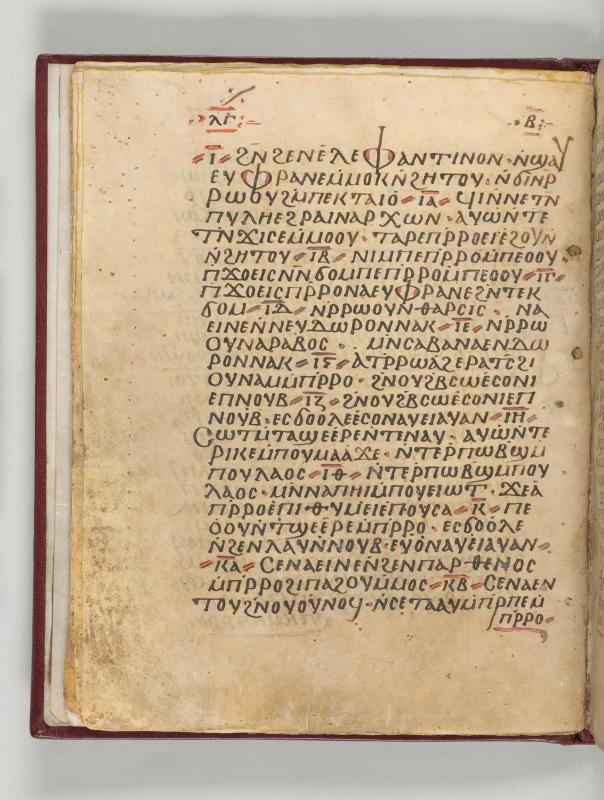 ⲗⲅ ⲃ
ⲓ ϩⲛϩⲉⲛⲉⲗⲉⲫⲁⲛⲧⲓⲛⲟⲛ · ⲛϣⲁⲩ
ⲉⲩⲫⲣⲁⲛⲉⲙⲙⲟⲕⲛϩⲏⲧⲟⲩ · ⲛϭⲓⲛⲣ
ⲣⲱⲟⲩϩⲙⲡⲉⲕⲧⲁⲓⲟ ⲓⲁ ϥⲓⲛⲛⲉⲧⲛ
ⲡⲩⲗⲏⲉϩⲣⲁⲓⲛⲁⲣⲭⲱⲛ · ⲁⲩⲱⲛⲧⲉ
ⲧⲛϫⲓⲥⲉⲙⲙⲟⲟⲩ · ⲧⲁⲣⲉⲡⲣⲣⲟⲉⲓⲉϩⲟⲩⲛ
ⲛϩⲏⲧⲟⲩ ⲓⲃ ⲛⲓⲙⲡⲉⲡⲣⲣⲟⲙⲡⲉⲟⲟⲩ ·
ⲡϫⲟⲉⲓⲥⲛⲛϭⲟⲙⲡⲉⲡⲣⲣⲟⲙⲡⲉⲟⲟⲩ ⲓⲅ
ⲡϫⲟⲉⲓⲥⲡⲣⲣⲟⲛⲁⲉⲩⲫⲣⲁⲛⲉϩⲛⲧⲉⲕ
ϭⲟⲙ ⲓⲇ ⲛⲣⲣⲱⲟⲩⲛⲑⲁⲣⲥⲓⲥ · ⲛⲁ
ⲉⲓⲛⲉⲛⲛⲉⲩⲇⲱⲣⲟⲛⲛⲁⲕ ⲓⲉ ⲛⲣⲣⲱ
ⲟⲩⲛⲁⲣⲁⲃⲟⲥ · ⲙⲛⲥⲁⲃⲁⲛⲁⲉⲛⲇⲱ
ⲣⲟⲛⲛⲁⲕ ⲓⲋ ⲁⲧⲣⲣⲱⲁϩⲉⲣⲁⲧⲥϩⲓ
ⲟⲩⲛⲁⲙⲙⲡⲣⲣⲟ · ϩⲛⲟⲩϩⲃⲥⲱⲉⲥⲟⲛⲓ
ⲉⲡⲛⲟⲩⲃ ⲓⲍ ϩⲛⲟⲩϩⲃⲥⲱⲉⲥⲟⲛⲓⲉⲡ
ⲛⲟⲩⲃ · ⲉⲥϭⲟⲟⲗⲉⲉⲥⲟⲛⲁⲩⲉⲓⲁⲩⲁⲛ ⲓⲏ
ⲥⲱⲧⲙⲧⲁϣⲉⲉⲣⲉⲛⲧⲉⲛⲁⲩ · ⲁⲩⲱⲛⲧⲉ
ⲣⲓⲕⲉⲙⲡⲟⲩⲙⲁⲁϫⲉ · ⲛⲧⲉⲣⲡⲱⲃϣⲙ
ⲡⲟⲩⲗⲁⲟⲥ ⲓⲑ ⲛⲧⲉⲣⲡⲱⲃϣⲙⲡⲟⲩ
ⲗⲁⲟⲥ · ⲙⲛⲛⲁⲡⲏⲓⲙⲡⲟⲩⲉⲓⲱⲧ · ϫⲉⲁ
ⲡⲣⲣⲟⲉⲡⲓⲑⲩⲙⲉⲓⲉⲡⲟⲩⲥⲁ ⲕ ⲡⲉ
ⲟⲟⲩⲛⲧϣⲉⲉⲣⲉⲙⲡⲣⲣⲟ · ⲉⲥϭⲟⲟⲗⲉ
ⲛϩⲉⲛⲗⲁⲩⲛⲛⲟⲩⲃ · ⲉⲩⲟⲛⲁⲩⲉⲓⲁⲩⲁⲛ
ⲕⲁ ⲥⲉⲛⲁⲉⲓⲛⲉⲛϩⲉⲛⲡⲁⲣⲑⲉⲛⲟⲥ
ⲙⲡⲣⲣⲟϩⲓⲡⲁϩⲟⲩⲙⲙⲟⲥ ⲕⲃ ⲥⲉⲛⲁⲉⲛ
ⲧⲟⲩϩⲛⲟⲩⲟⲩⲛⲟϥ · ⲛⲥⲉⲧⲁⲁⲩⲙⲡⲣⲡⲉⲙ
ⲡⲣⲣⲟ